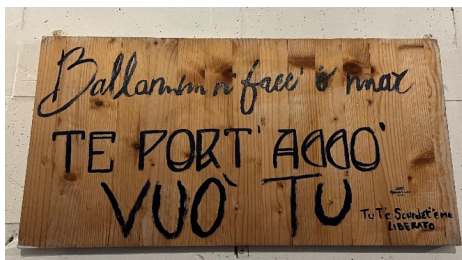 Ballammm n' facc' ô mar
TE PORT' ACCO'
VUO' TU
Tu T'e Scurdat' e me
LIBERATO